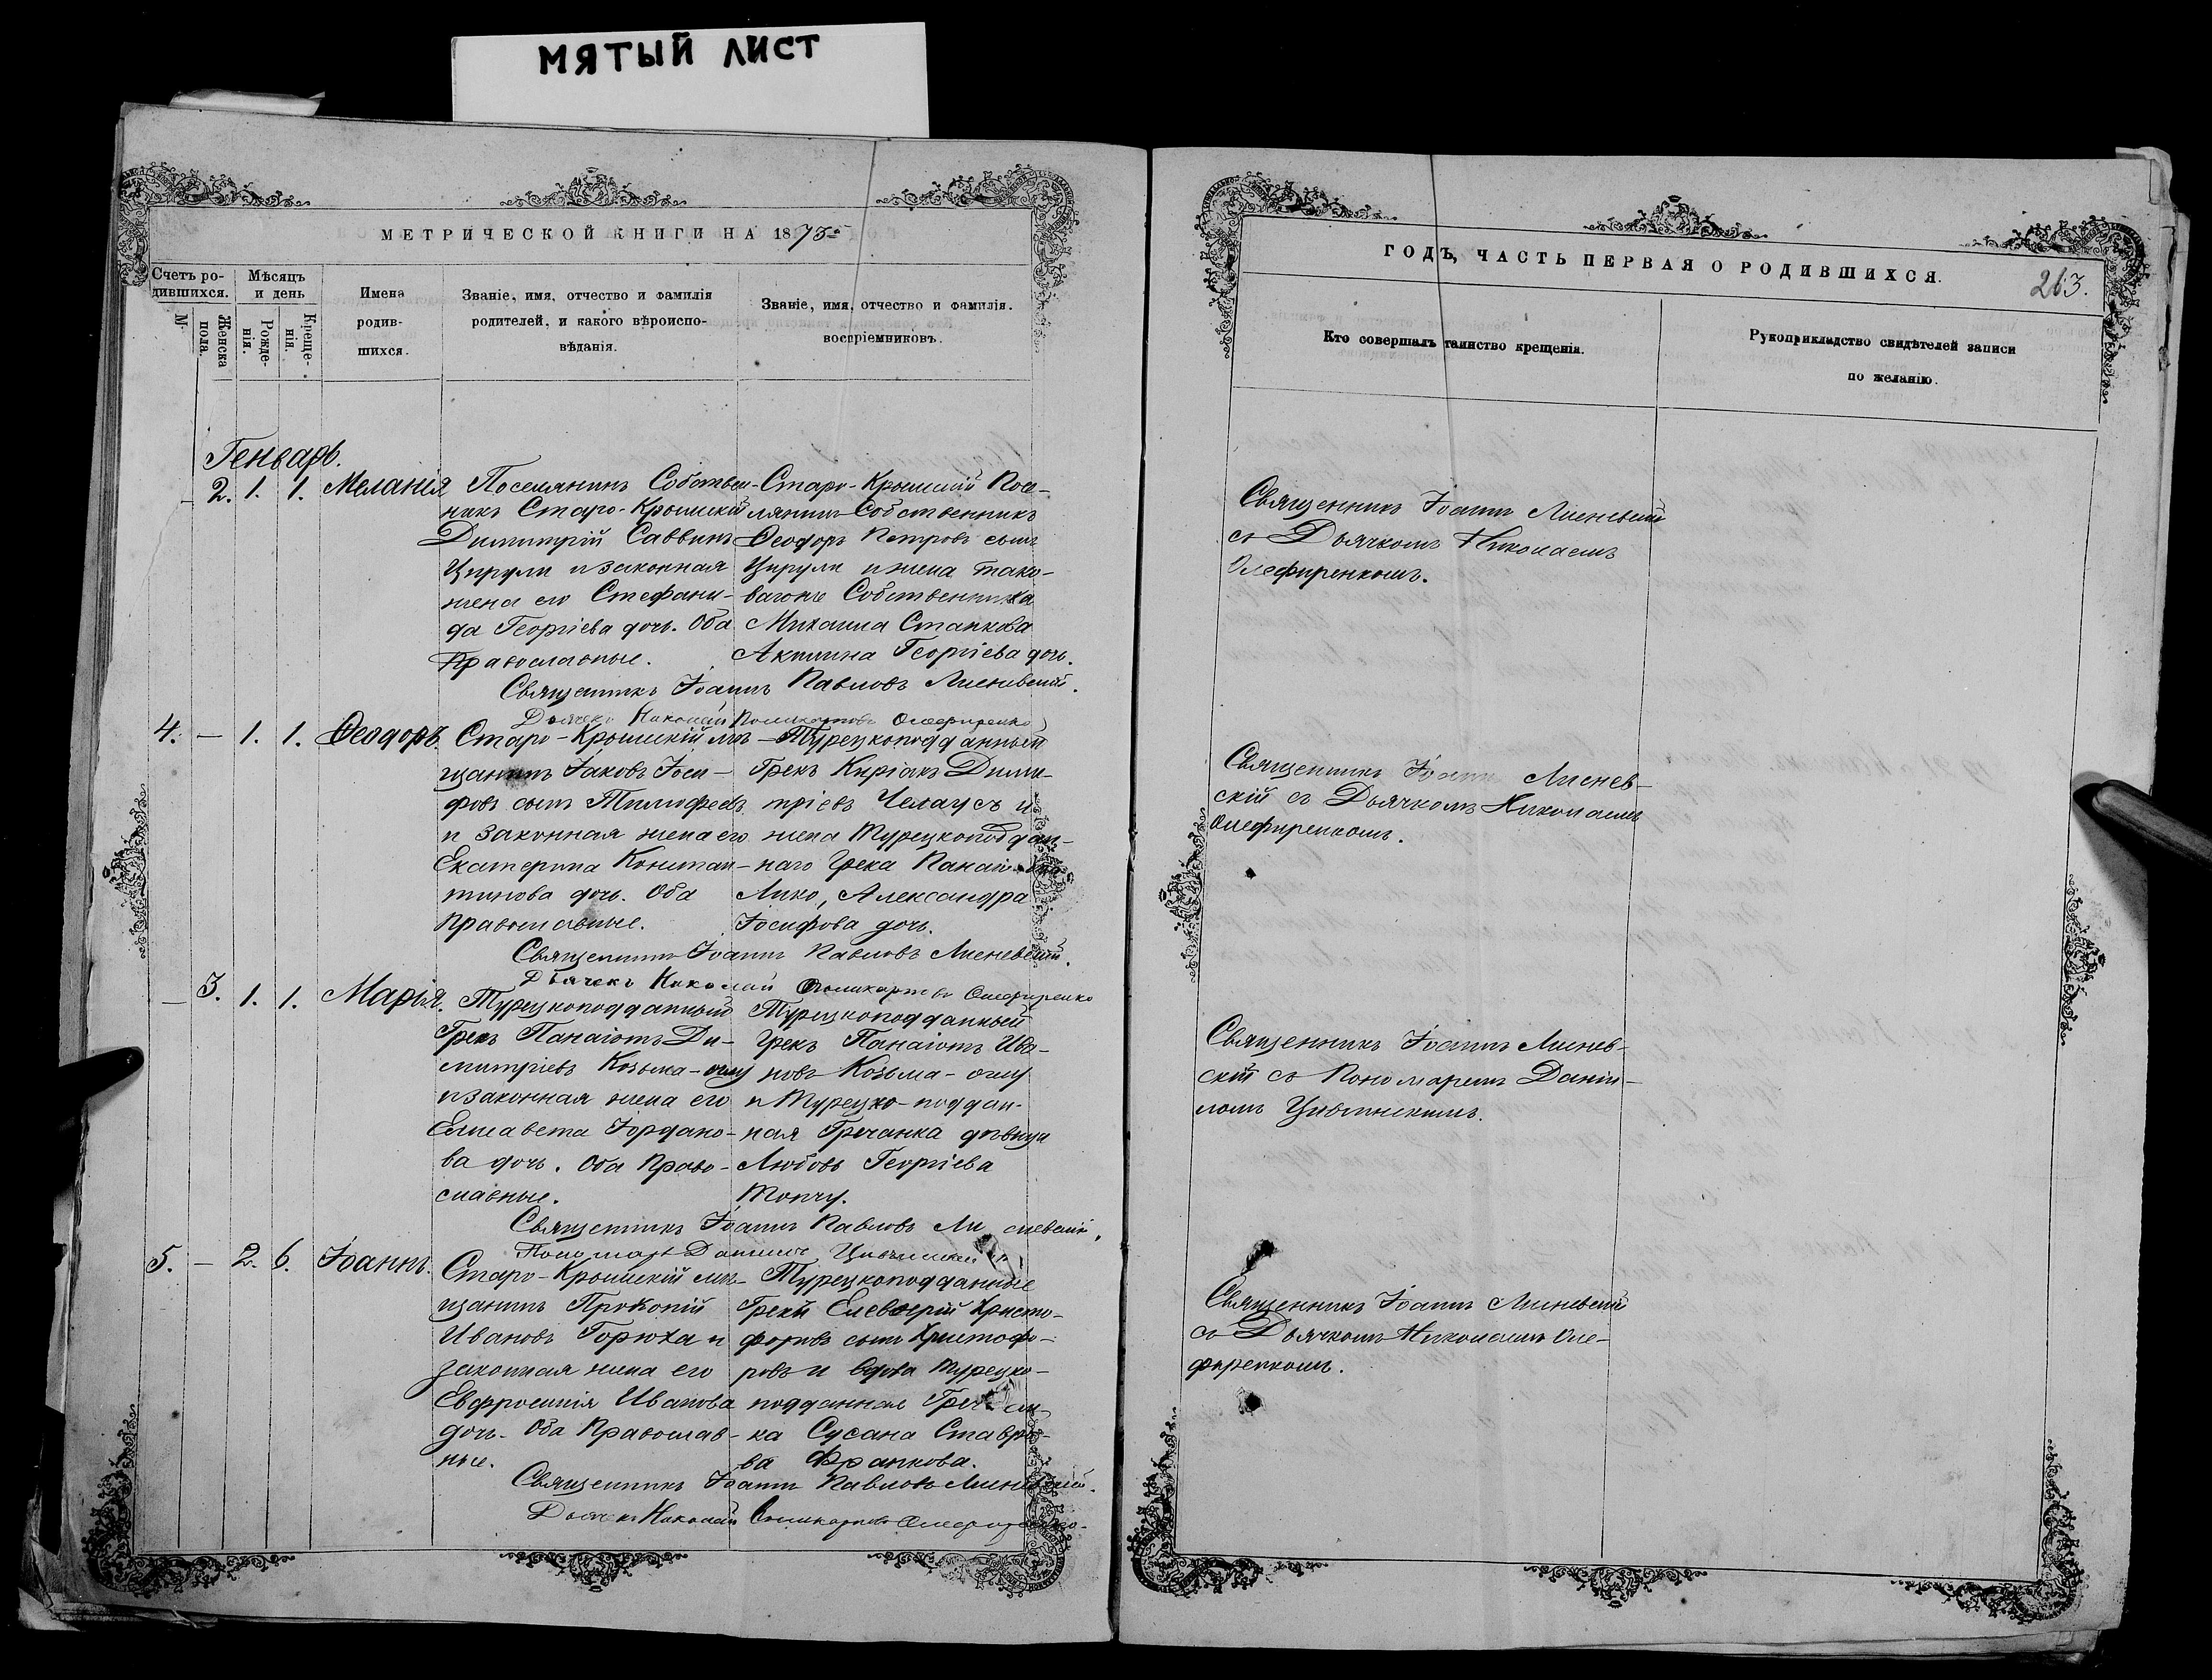 МЯТЫЙ ЛИСТ
МЕТРИЧЕСКОЙ КНИГИ НА 1875
Счетъ ро-
дившихся.
Мѣсяцъ
и день
№
Женска
пола.
Рожде-
нія.
Креще-
нія.
Имена
родив-
шихся.
Званіе, имя, отчество и фамилія
родителей, и какого вѣроиспо-
вѣданія.
Званіе, имя, отчество и фамилія.
воспріемниковъ.
Генварь.
2. 1. 1. Меланія
Поселянинъ Собствен-
никъ Старо-Крымскій
Димитрій Саввинъ
Цирули и законная
жена его Стефани-
да Георгіева дочь. Оба
Православные.
Старо-Крымскій Посе-
лянинъ Собственникъ
Ѳеодоръ Петровъ сынъ
Цирули и жена тако-
вагоже Собственника
Михаила Станкова
Акилина Георгіева дочь.
Священникъ Іоаннъ Павловъ Лисневскій.
Дьячекъ Николай Поликарповъ Олефиренко
4. — 1. 1. Ѳеодоръ.
Старо-Крымскій мѣ-
щанинъ Іаковъ Іоси-
фовъ сынъ Тимофеевъ
и законная жена его
Екатерина Констан-
тинова дочь. Оба
Православные.
Турецкоподданный
Грекъ Киріакъ Дими-
тріевъ Челаусъ и
жена Турецкоподдан-
наго Грека
Лико, Александра
Іосифова дочь.
Священникъ Іоаннъ Павловъ Лисневскій.
Дьячекъ Николай Поликарповъ Олефиренко
— 3. 1. 1. Марія.
Турецкоподданный
Грекъ Панаіотъ Ди-
митріевъ Козьма-оглу
и законная жена его
Елисавета Іордано-
ва дочь. Оба Право-
славные.
Турецкоподданный
Грекъ Панаіотъ Ива-
новъ Козьма-оглу
и Турецко-поддан-
ная Гречанка дѣвица
Любовь Георгіева
Топчу.
Священникъ Іоаннъ Павловъ Лисневскій.
Пономарь Даніилъ
5. — 2. 6. Іоаннъ.
Старо-Крымскій мѣ-
щанинъ Прокопій
Ивановъ Горюха и
законная жена его
Евфросинія Иванова
дочь. Оба Православ-
ные.
Турецкоподданные
Греки Елевѳерій Христо-
форовъ сынъ Христофо-
ровъ и вдова Турецко-
подданная Гречан-
ка Сусана Ставро-
ва Франкова.
Священникъ Іоаннъ Павловъ Лисневскій.
Дьячекъ Николай Поликарповъ Олефиренко
ГОДЪ, ЧАСТЬ ПЕРВАЯ О РОДИВШИХСЯ.
263.
Кто совершалъ таинство крещенія.
Рукоприкладство свидѣтелей записи
по желанію.
Священникъ Іоаннъ Лисневскій
съ Дьячкомъ Николаемъ
Олефиренкомъ.
Священникъ Іоаннъ Лиснев-
скій съ Дьячкомъ Николаемъ
Олефиренкомъ.
Священникъ Іоаннъ Лиснев-
скій съ Пономаремъ Даніи-
ломъ
Священникъ Іоаннъ Лисневскій
съ Дьячкомъ Николаемъ Оле-
фиренкомъ.